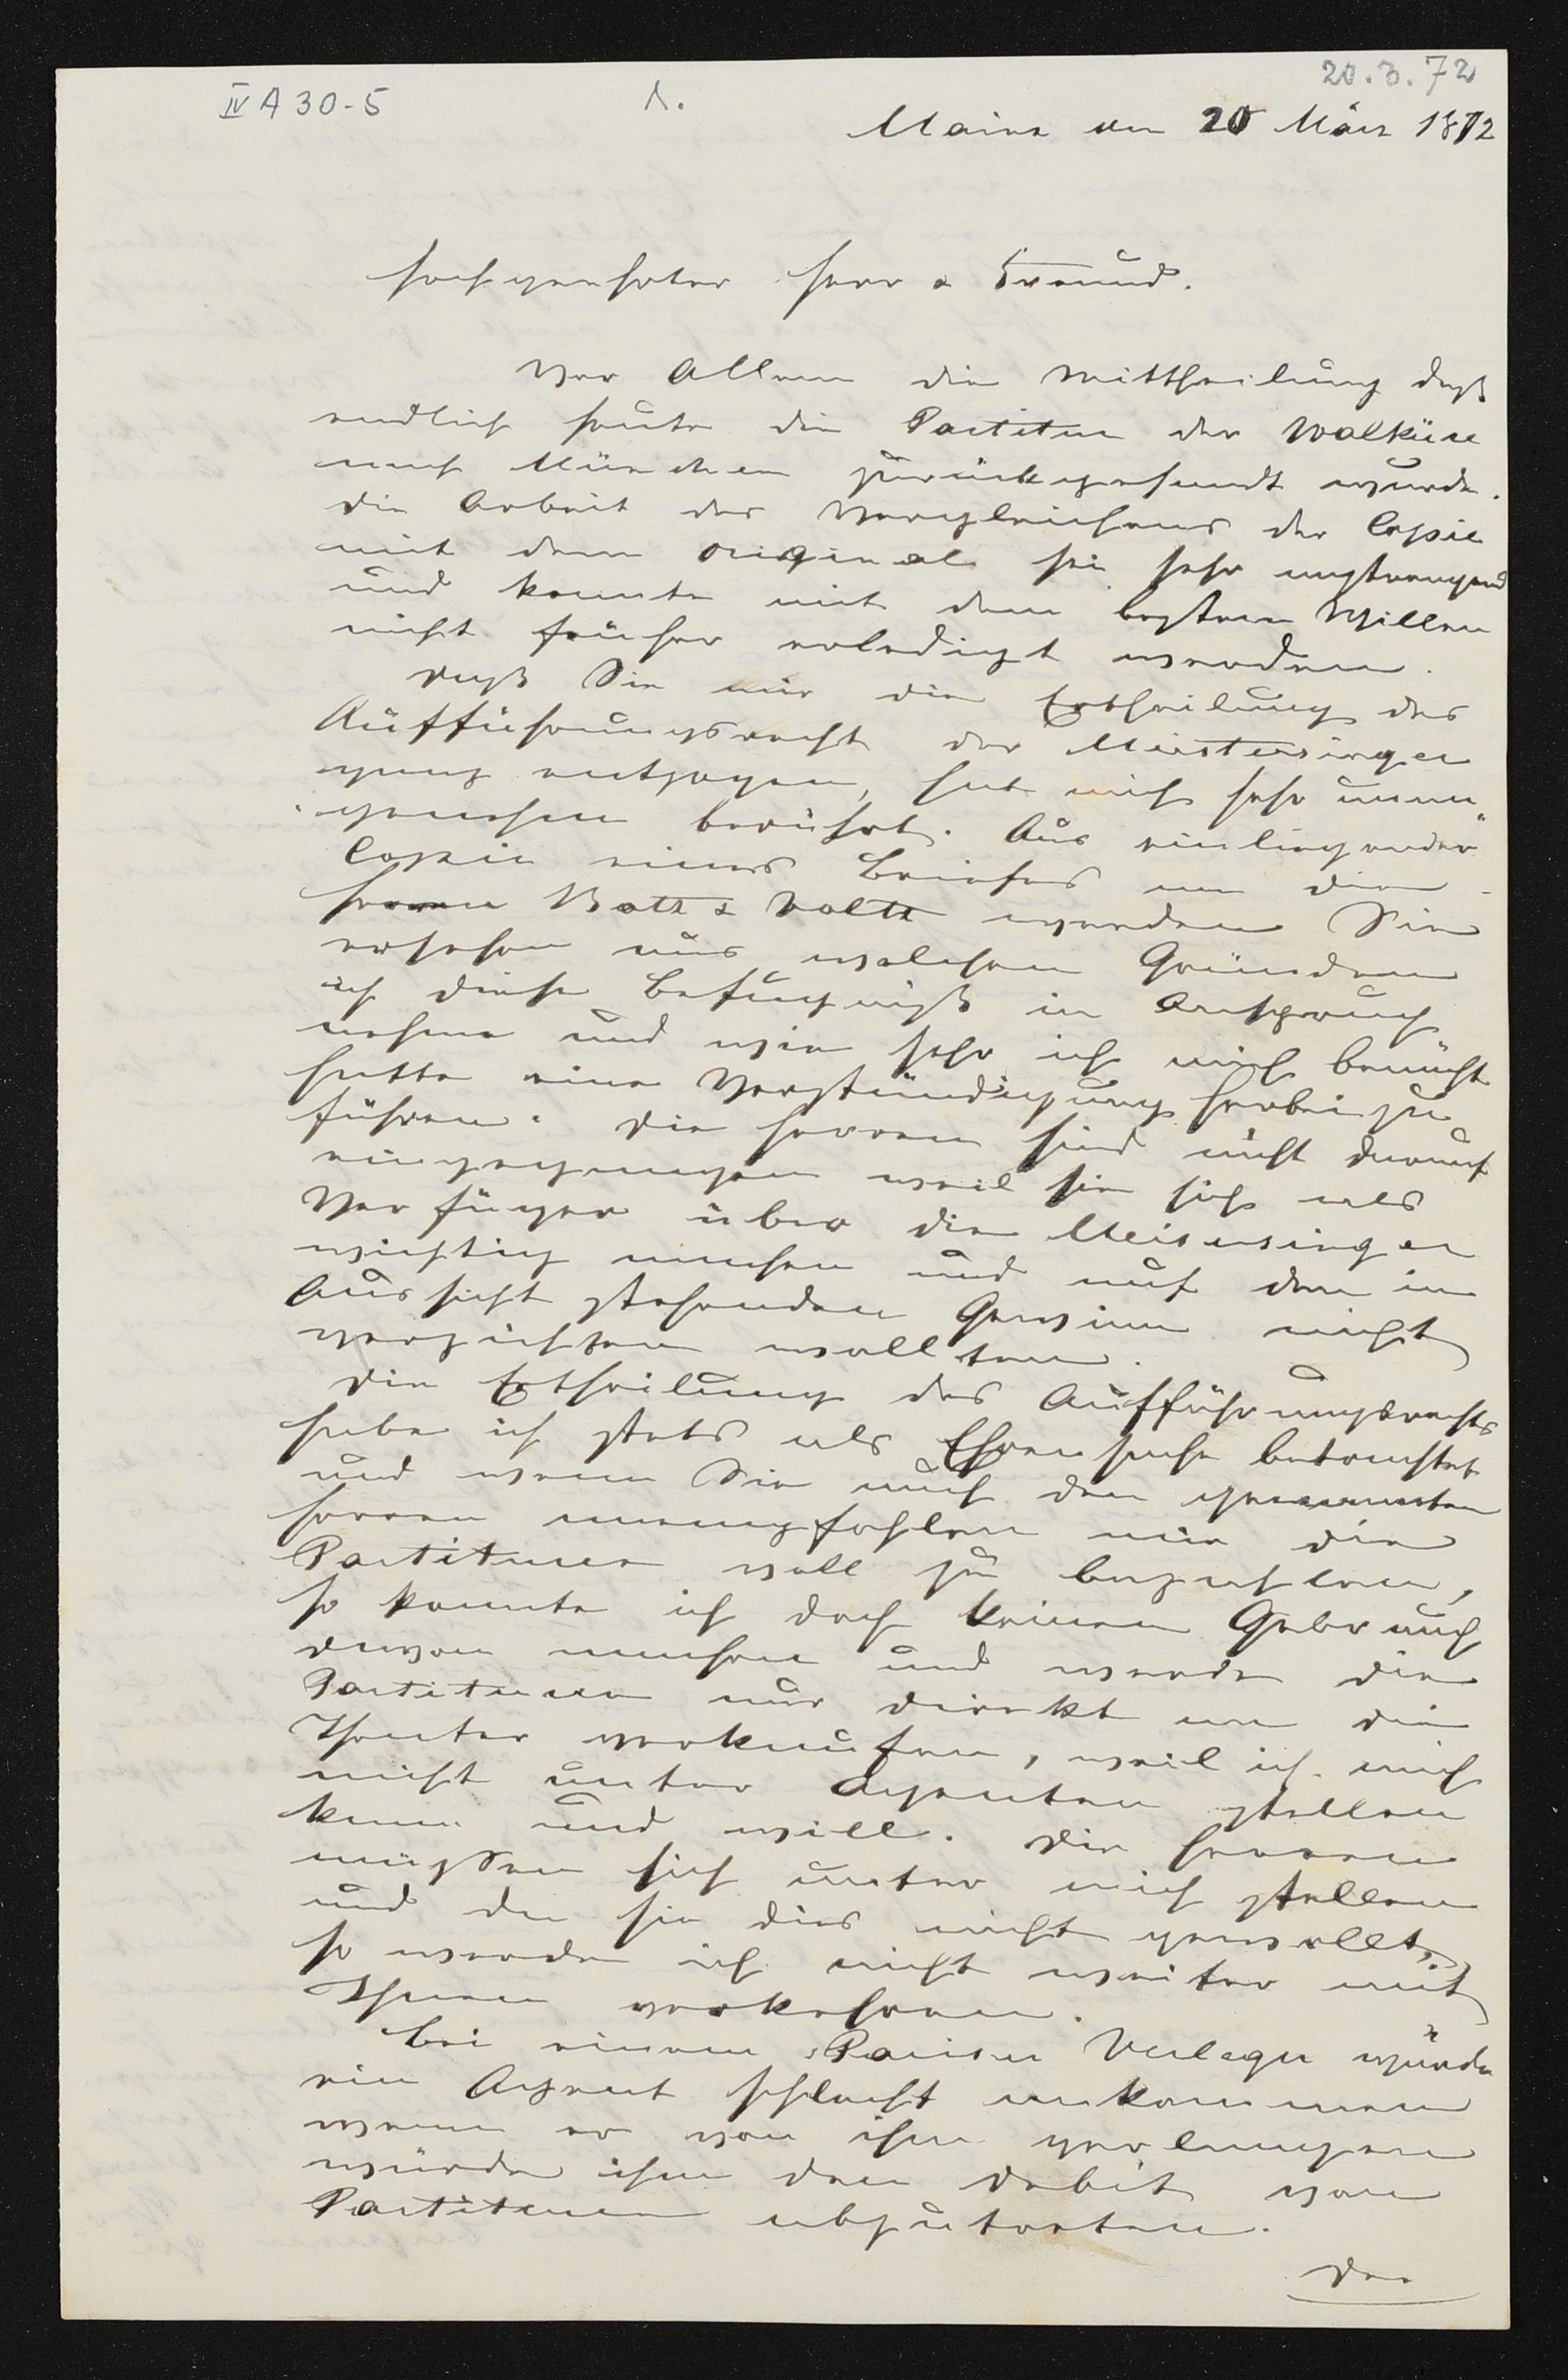 IV A 30-5
1.
20.3.72
Mainz den 20 März 1872
Hochgeehrter Herr & Freund.
Vor Allem die Mittheilung daß
endlich heute die Partitur der Walküre
nach München zurückgesandt wurde.
Die Arbeit des Vergleichens der Copie
mit dem Original sei sehr anstrengend
und konnte mit dem besten Willen
nicht früher erledigt werden.
Daß Sie mir die Ertheilung des
Aufführungsrecht der Meistersinger
ganz entzogen, hat mich sehr unan"
"genehm berührt. Aus einliegender
Copie eines Briefes an die
Herren Batz & Voltz werden Sie
ersehen aus welchen Gründen
ich diese Befugniß in Anspruch
nehme und wie sehr ich mich bemüht
hatte eine Verständigung herbei zu
führen. Die Herren sind nicht darauf
eingegangen weil sie sich als
Verfüger über die Meistersinger
wichtig machen und auf den in
Aussicht stehenden Gewinn nicht
verzichten wollten.
Die Ertheilung des Aufführungsrechts
habe ich stets als Ehrensache betrachtet
und wenn Sie auch den genannten
Herren anempfohlen mir die
Partituren voll zu bezahlen,
so konnte ich doch keinen Gebrauch
davon machen und werde die
Partituren nur direkt an die
Theater verkaufen, weil ich mich
nicht unter Agenten stellen
kann und will. Die Herren
müßen sich unter mich stellen
und da sie dies nicht gewollt,
so werde ich nicht weiter mit
Ihnen verkehren.
Bei einem Pariser Verleger würde
ein Agent schlecht ankommen
wenn er von ihm verlangen
würde ihm den Debit von
Partituren abzutreten.
Der